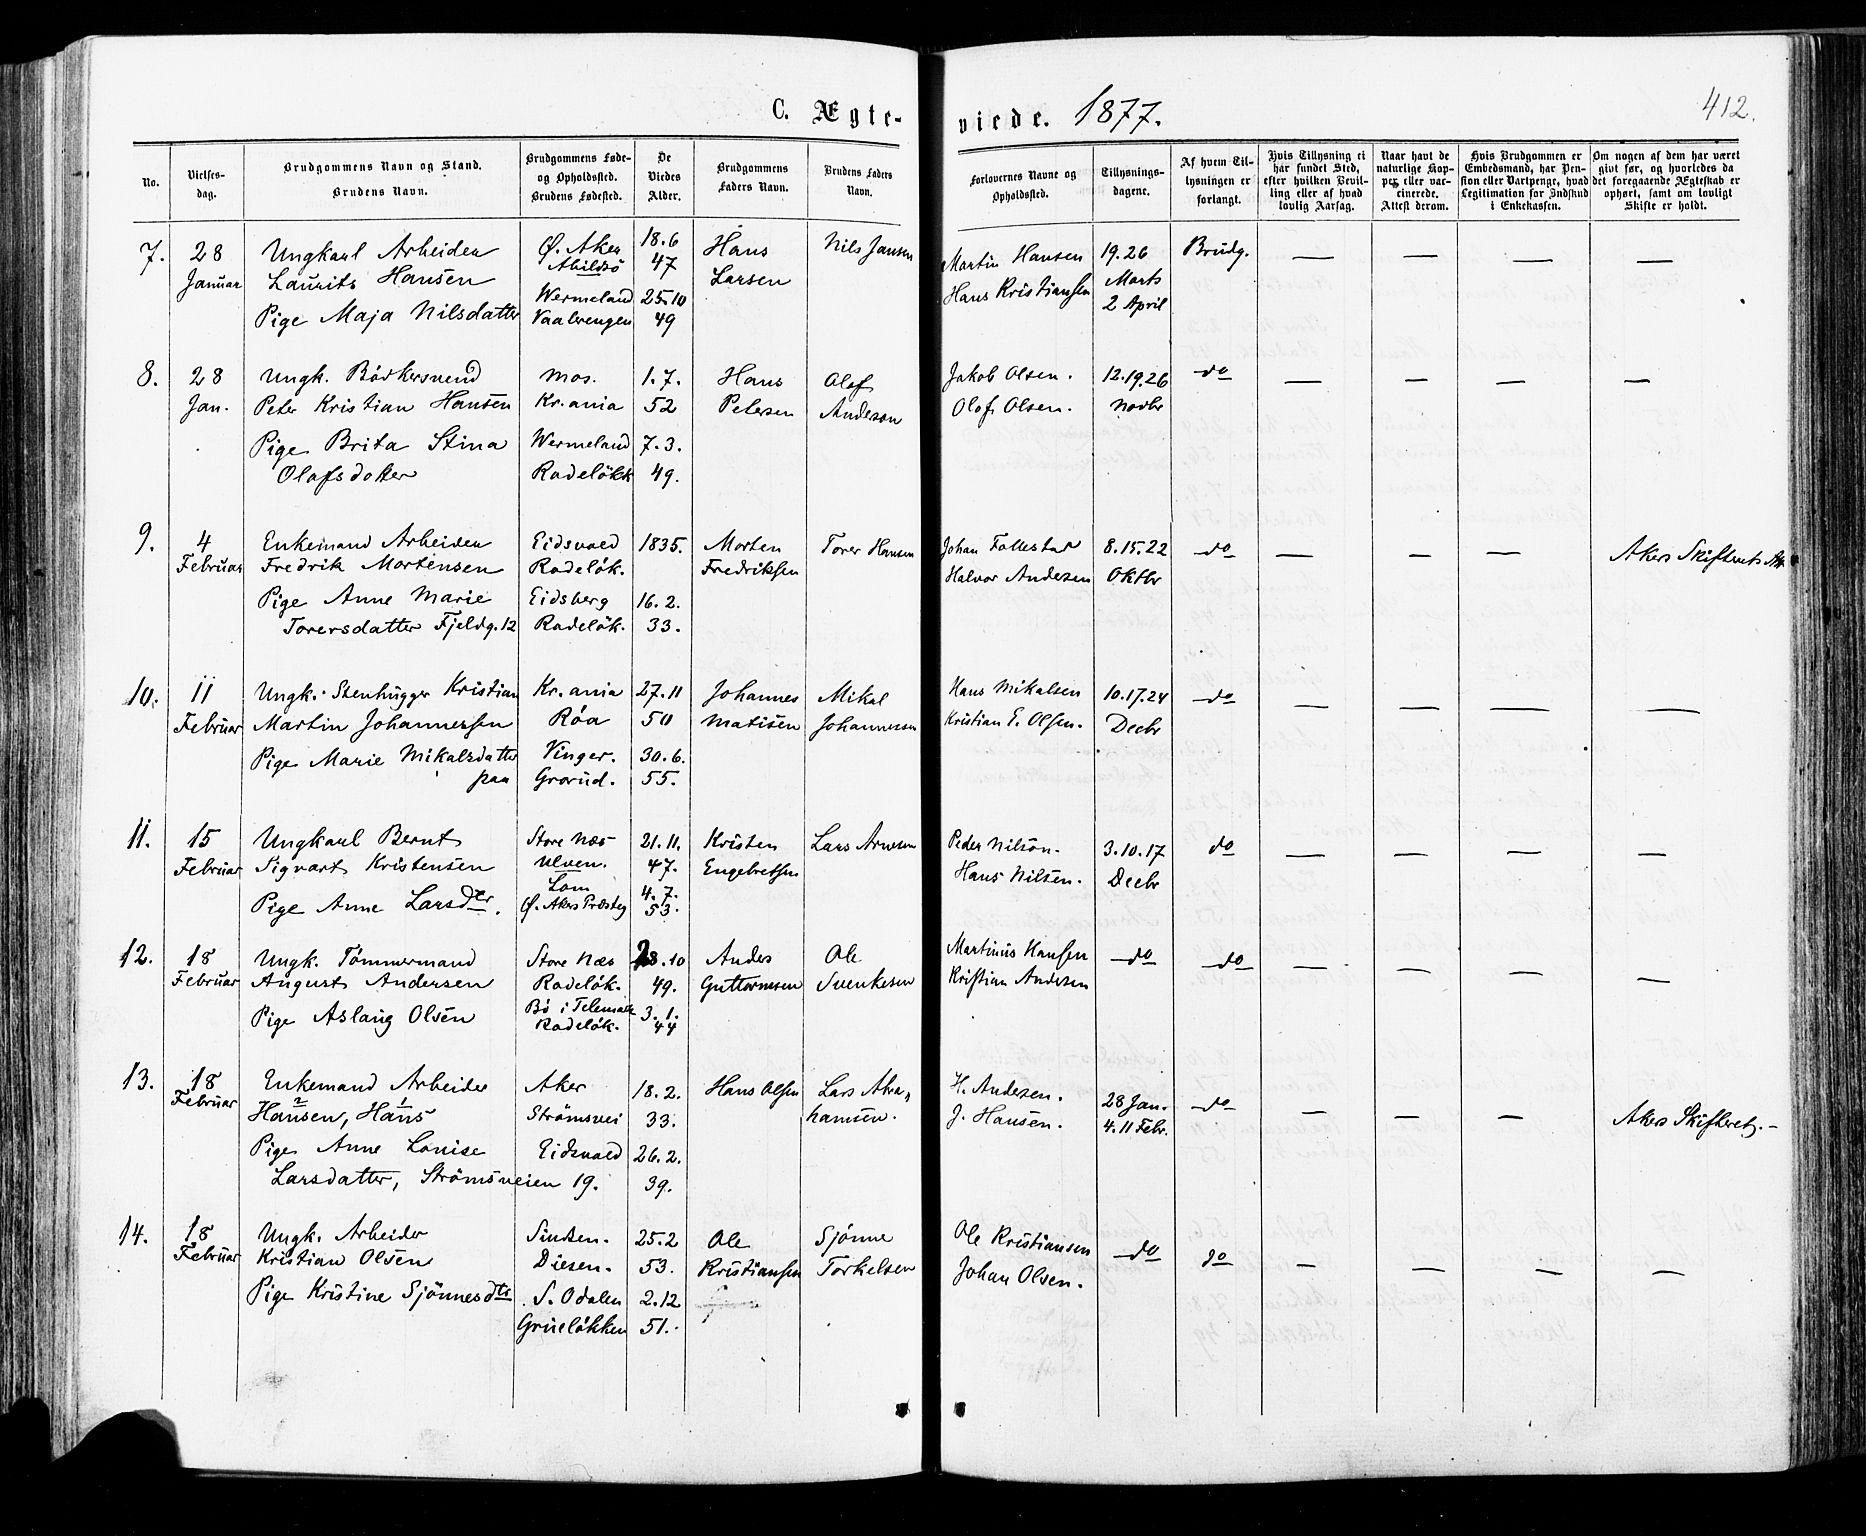 C. Ægte-
viede. 1877.
412.
No.
Vielses-
dag.
Brudgommens Navn og Stand.
Brudens Navn.
Brudgommens Føde-
og Opholdssted.
Brudens Fødested.
De
Viedes
Alder.
Brudgommens
Faders Navn.
Brudens Faders
Navn.
Forlovernes Navne og
Opholdssted.
Tillysnings-
dagene.
Af hvem Til-
lysningen er
forlangt.
Hvis Tillysning ei
har fundet Sted,
efter hvilken Bevil-
ling eller af hvad
lovlig Aarsag.
Naar havt de
naturlige Kop-
per eller vac-
cinerede.
Attest derom.
Hvis Brudgommen er
Embedsmand, har Pen-
sion eller Vartpenge, hvad
Legitimation for Indskud
i Enkekassen.
Om nogen af dem har været
gift før, og hvorledes da
det foregaaende Ægteskab er
ophørt, samt om lovligt
Skifte er holdt.
7.
28
Januar
Ungkarl Arbeider
Laurits Hansen
Pige Maja Nilsdatter
Ø. Aker
Abildsö
Wermeland
Vaalerengen
18.6
47
25.10
49
Hans
Larsen
Nils Jansen
Martin Hansen
Hans Kristiansen
19.26
Marts
2 April
Brudg.
— — — —
8.
28
Jan.
Ungk. Bödkersvend
Peter Kristian Hansen
Pige Brita Stina
Olafsdotter
Mos.
Kr.ania
Wermeland
Rodeløkk
1.7.
52
7.3.
49.
Hans
Petersen
Olof
Anderson
Jakob Olsen.
Olof Olsen.
12.19.26
Novbr
do
— — — —
9.
4
Februar
Enkemand Arbeider
Fredrik Mortensen
Pige Anne Marie
Torersdatter Fjeldg. 12
Eidsvold
Rodeløk.
Eidsberg
Rodeløk.
1835.
16.2.
33.
Morten
Fredriksen
Torer Hansen
Johan Follestad
Halvor Andersen
8.15.22
Oktbr
do
— — —
Akers Skifterets Att.
10.
11
Februar
Ungk. Stenhugger Kristian
Martin Johannessen
Pige Marie Mikalsdatter
paa
Kr.ania
Røa
Vinger.
Grorud.
27.11
50
30.6.
55.
Johannes
Matisen
Mikal
Johannessen
Hans Mikalsen
Kristian E. Olsen.
10.17.24
Decbr
do
— — — —
11.
15
Februar
Ungkarl Bernt
Sigvart Kristensen
Pige Anne Larsdtr.
Store Næs
Ulven.
Lom
Ø. Akers Præsteg
21.11.
47.
4.7.
53.
Kristen
Engebretsen
Lars Arnesen
Peder Nilsön.
Hans Nilsen.
3.10.17
Decbr
do
— — — —
12.
18
Februar
Ungk. Tömmermand
August Andersen
Pige Aslaug Olsen
Store Næs
Rodeløk.
Bö i Telemark
Rodeløk.
28.10
49.
3.1.
44
Andes
Guttormsen
Ole
Svenkesen
Martinius Hansen
Kristian Andersen
do
do
— — — —
13.
18
Februar
Enkemand Arbeider
Hansen, Hans
Pige Anne Louise
Larsdatter, Strömsveien 19.
Aker
Strömsvei
Eidsvold
18.2.
33.
26.2.
39.
Hans Olsen
Lars Abra-
hamsen.
H. Andersen.
J. Hansen.
28 Jan.
4.11 Febr.
do
— — —
Akers Skifteret.
14.
18
Februar
Ungk. Arbeider
Kristian Olsen
Pige Kristine Sjönnesdtr
Sinsen.
Diesen.
S. Odalen
Grüeløkken
25.2
53.
2.12
51.
Ole
Kristiansen
Sjönne
Torkelsen
Ole Kristiansen
Johan Olsen.
do
do
— — — —